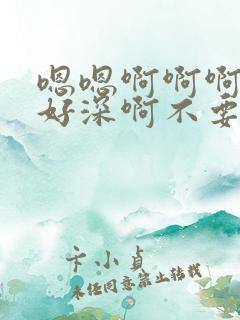 嗯嗯啊啊啊
好深啊不要
卡小贞
未经同意禁止转载